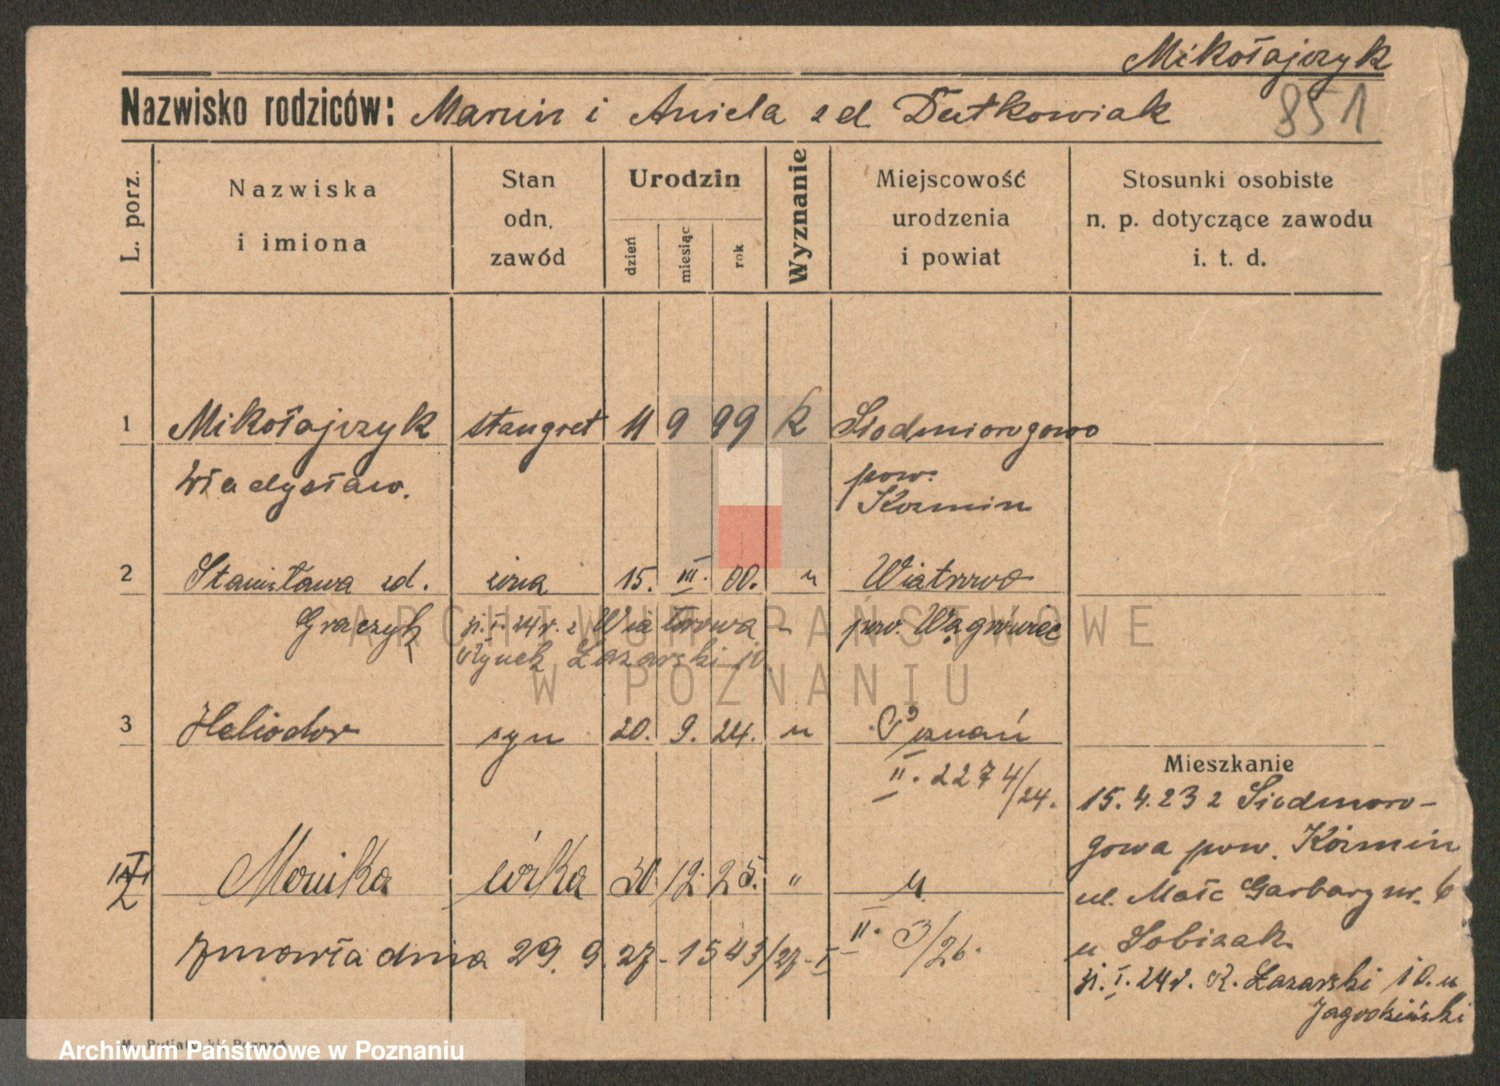 Mikołajczyk
Nazwisko rodziców: Marcin i Aniela zd Dutkowiak
851
L. porz.
Nazwiska i imiona
Stan odn. zawód
Urodzin
dzień
miesiąc
rok
Wyznanie
Miejscowość urodzenia i powiat
Stosunki osobiste n. p. dotyczące zawodu i. t. d.
1 Mikołajczyk stangret 11 9 99 k Siodmiorogowo
Władysław. pow. Kozmin
2 Stanisława zd. żona 15. III. 00. " Wiatrowo
Graczyk p. I. 24r. z Wiatrowa - pow. Wągrówiec
Rynek Łazarski 10.
3 Heliodor syn 20. 9. 24. " Poznań
II. 2274/24.
Monika córka 30. 12. 25. " "
II. 3/26.
zmarła dnia 29. 9. 27 - 1543/27 - I
Mieszkanie
15.4.23 z Siodmoro-
gowa pow. Kózmin
ul. Małe Garbary nr. 6
u Sobizak
p. I. 24r. R. Łazarski 10. u
Jagodziński
ARCHIWUM PAŃSTWOWE
W POZNANIU
Archiwum Państwowe w Poznaniu